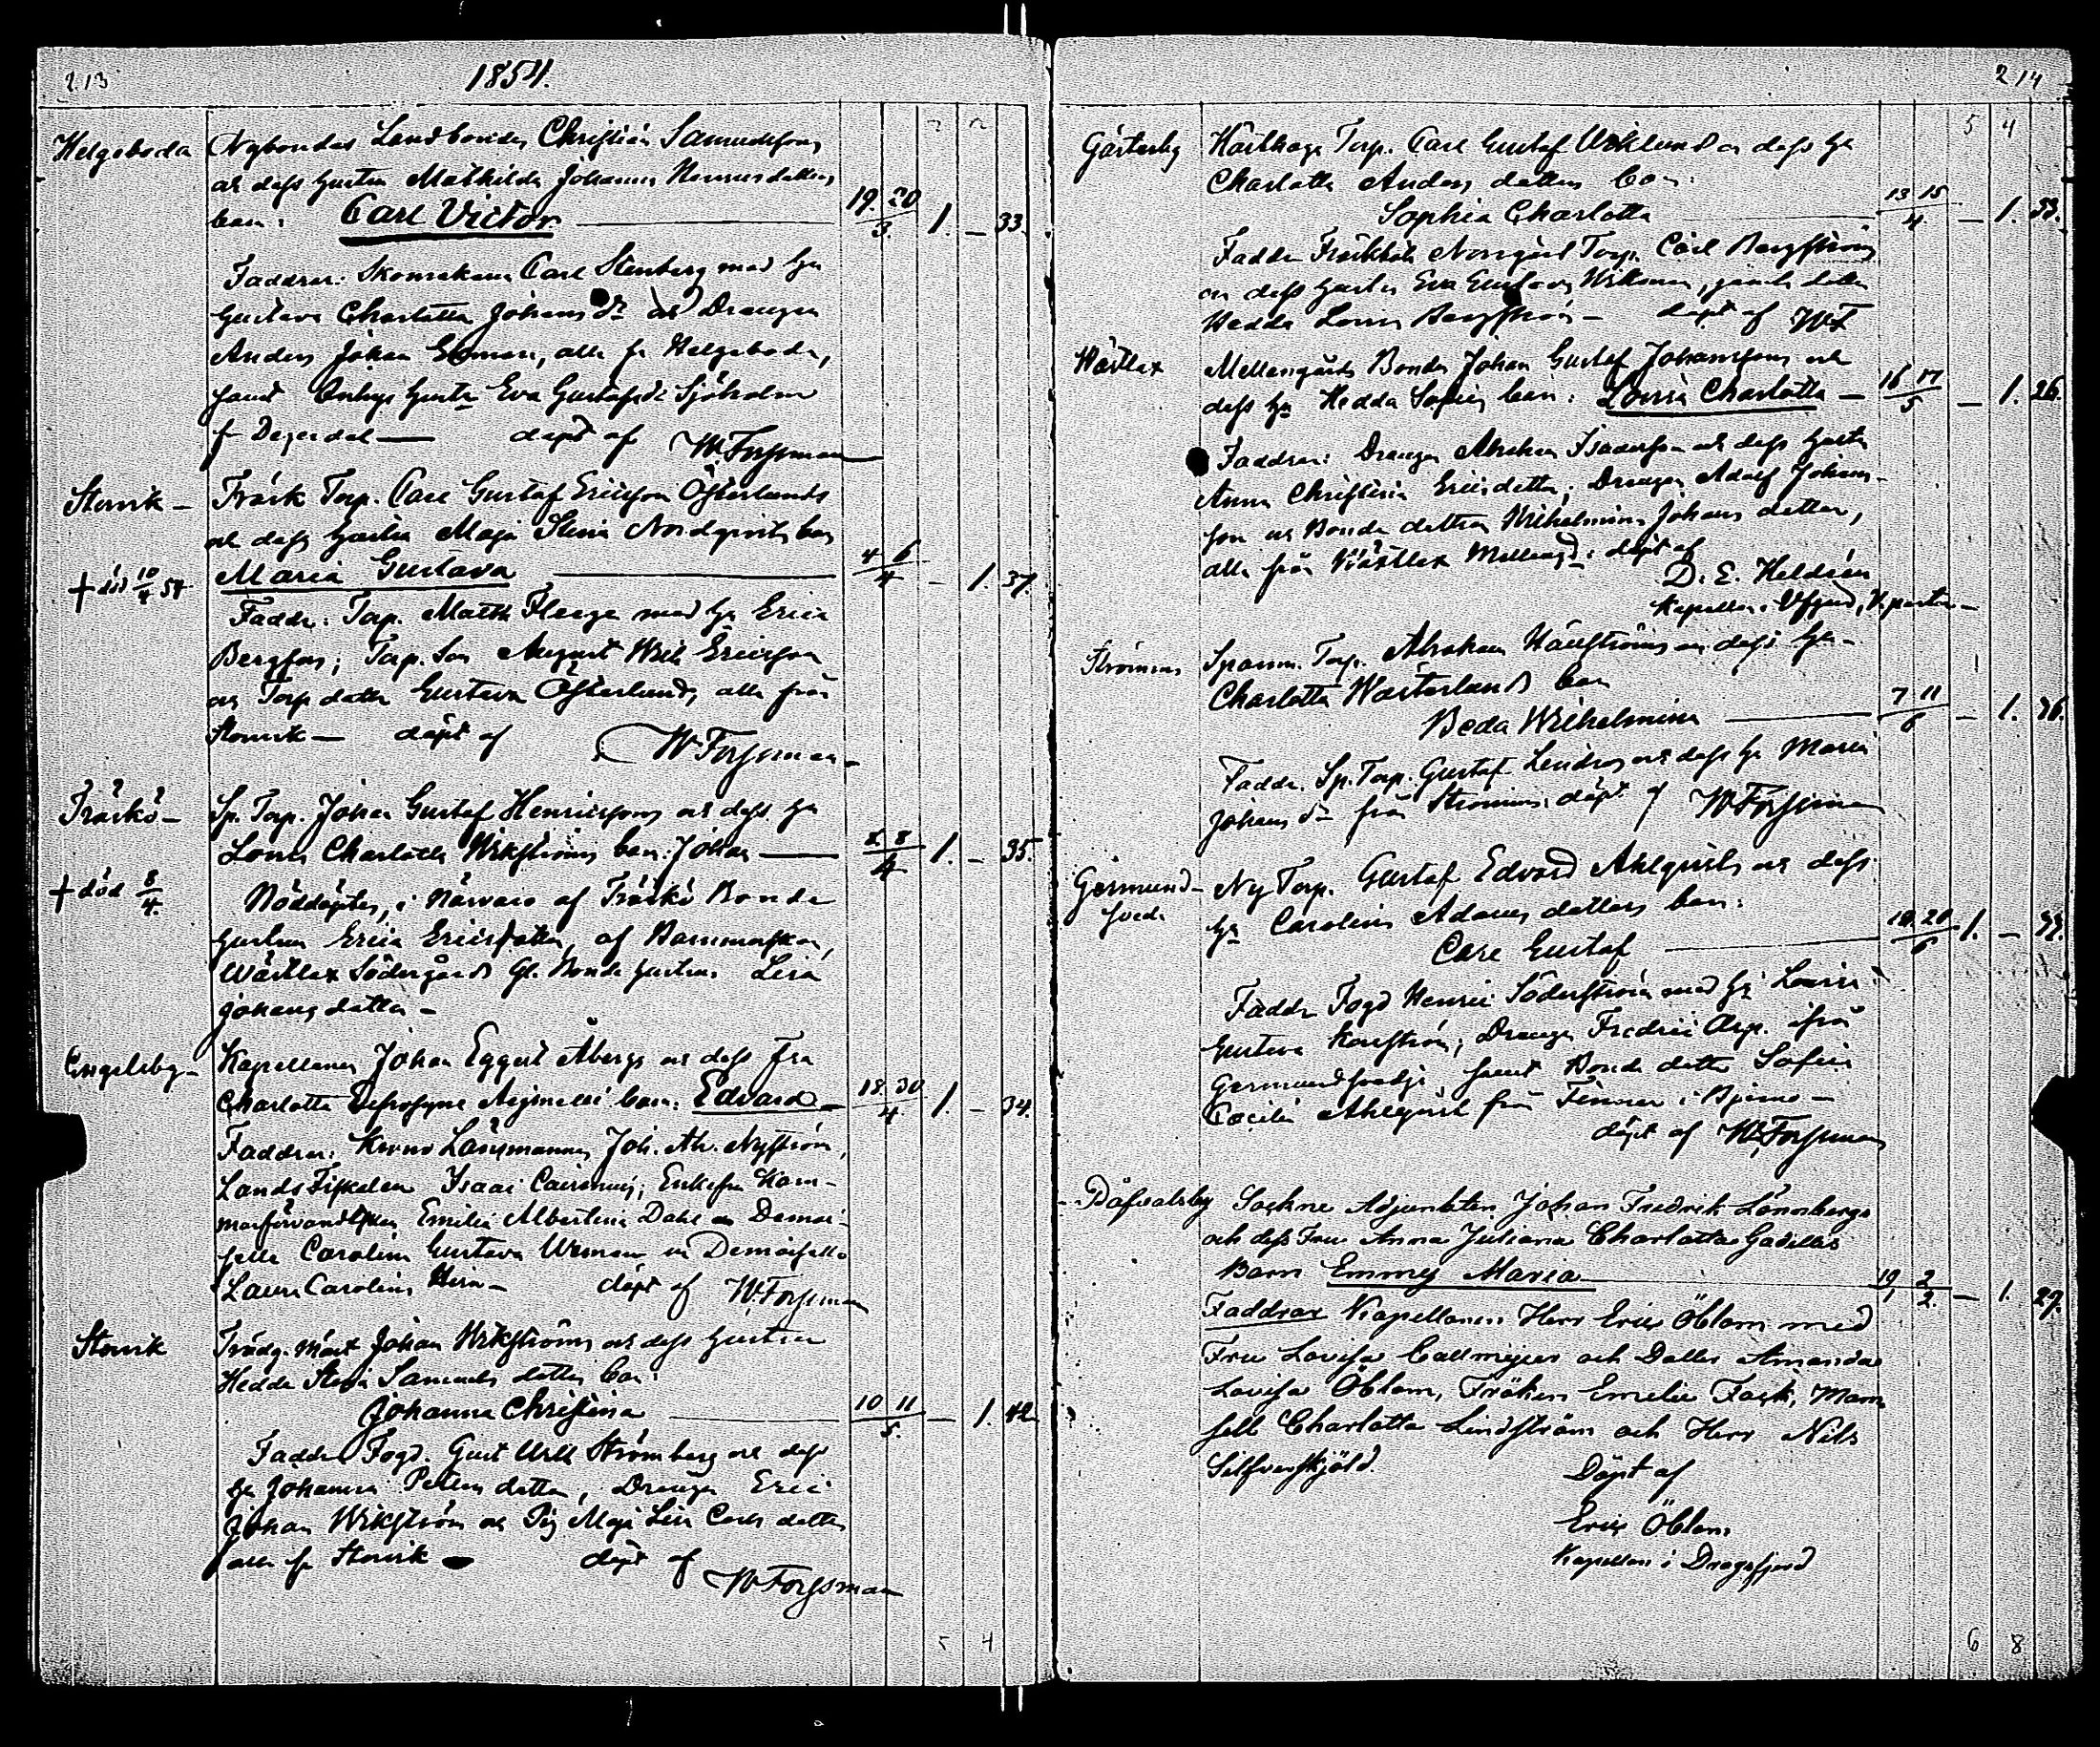 213
1854.
Helgeboda Nybondas Landbondes Christian Samuelssons
och dess hustru Mathilda Johanna Henricsdotters
barn: Carl Victor 19. 20 / 3. 1. – 33.
Faddrar: Skomakaren Carl Stenberg med h:u
Gustava Charlotta Johans dr och Drängen
Anders Johan Ekman, alla fr Helgeboda,
samt Enkas hustr Eva Gustafsdr Sjöholm
fr Degerdal — döpt af W. Forssman
Storvik – Träsk Torp. Carl Gustaf Ericsson Österlunds
och dess hustru Maja Stina Nordqvists barn
† död 10/4 54 Maria Gustava 4 6 / 4 – 1. 37.
Faddr: Torp. Matts Fleege med h:u Erica
Bergfors; Torp. Son August Wilh Ericsson
och Torp dotter Gustava Österlund, alla från
Storvik — döpt af W. Forssman
Träskö – Sp. Torp. Johan Gustaf Henricssons och dess h:u
Lovisa Charlotta Wikströms barn: Johan 8 8 / 4 1. – 35.
† död 8/4. Nöddöptes, i närvaro af Träskö Bonde
hustrun Erica Ericsdotter, af Barnmorskan,
Wästlax Södergårds Gl. Bonde hustrun Lisa
Johansdotter –
Engelsby – Kapellanen Johan Eggert Åbergs och dess Fru
Charlotta Eufrosyne Argillanders barn: Edvard – 18. 30 / 4 1. – 34.
Faddrar: Krono Länsmannen Joh. Ab. Nyström,
Lands Fiskalen Isaac Cairenius; Enkefru Kam-
marförvandtskan Emilia Albertina Dahl och Demoi-
selle Carolina Gustava Wiman och Demoiselle
Laura Carolina Hirn – döpt af W. Forssman
Storvik Trädg. Mäst Johan Wikströms och dess hustru
Hedda Stina Samuels dotters barn:
Johanna Christina 10 11 / 5. – 1. 42
Faddr Fogd. Gust Wilh Strömberg och dess
h:u Johanna Petters dotter, Drängen Eric
Johan Wikström och Pig Maja Lisa Carls dotter
alla fr Storvik — döpt af
W Forssman
5 4
214
5 4
Gästerby Hästhaga Torp. Carl Gustaf Wiklunds och dess h:u
Charlotta Anders dotters barn:
Sophia Charlotta 13 15 / 4 – 1. 33.
Faddr Norrgård Torp. Carl Bergström
och dess hustru Eva Gustava Wikman, jemte dotter
Hedda Lovisa Bergström – döpt af W. F
Wästlax Mellangårds Bonden Johan Gustaf Johanssons och
dess h:u Hedda Sofias barn: Lovisa Charlotta – 16 17 / 5 – 1. 26.
Faddrar: Drängen Abraham Isacsson och dess hustru
Anna Christina Ericsdotter, Drängen Adolf Johans-
son och Bonde dottren Wilhelmina Johans dotter,
alla från Wästlax Mellangd. döpt af
D. E. Heldeén
Kapellan i Uskela, V. pastor –
Strömma Spanm. Torp. Abraham Hällströms och dess h:u –
Charlotta Wästerlunds barn
Beda Wilhelmina 7 11 / 6 – 1. 36.
Faddr. Sp. Torp. Gustaf Lindros och dess h:u Maria
Johans dr från Strömma. döpt af W Forssman
Germund- Ny Torp. Gustaf Edvard Ahlqvists och dess
svedi h:u Carolina Adams dotters barn:
Carl Gustaf 19. 20 / 6 1. – 33.
Faddr Fogd Henric Söderström med h:u Lovisa
Gustava Kouström; Drängen Fredric Arp. ifrån
Germundsvedja, samt Bonde dotter Sofia
Cecilia Ahlqvist från Finnars i Bjerno –
döpt af W. Forssman
Båfvalsby Sockne Adjunkten Johan Fredrik Lönnbergs
och dess Fru Anna Juliana Charlotta Gadellis
Barn Emmy Maria 19 2 / 1 2. – 1. 29.
Faddrar Kapellanen Herr Eric Öblom med
Fru Lovisa Callmejer och Dotter Amanda
Lovisa Öblom, Fröken Emelie Fock, Mam-
sell Charlotta Lindström och Herr Nils
Silfverskjöld. Döpt af
Eric Öblom
Kapellan i Dragsfjerd
6 8